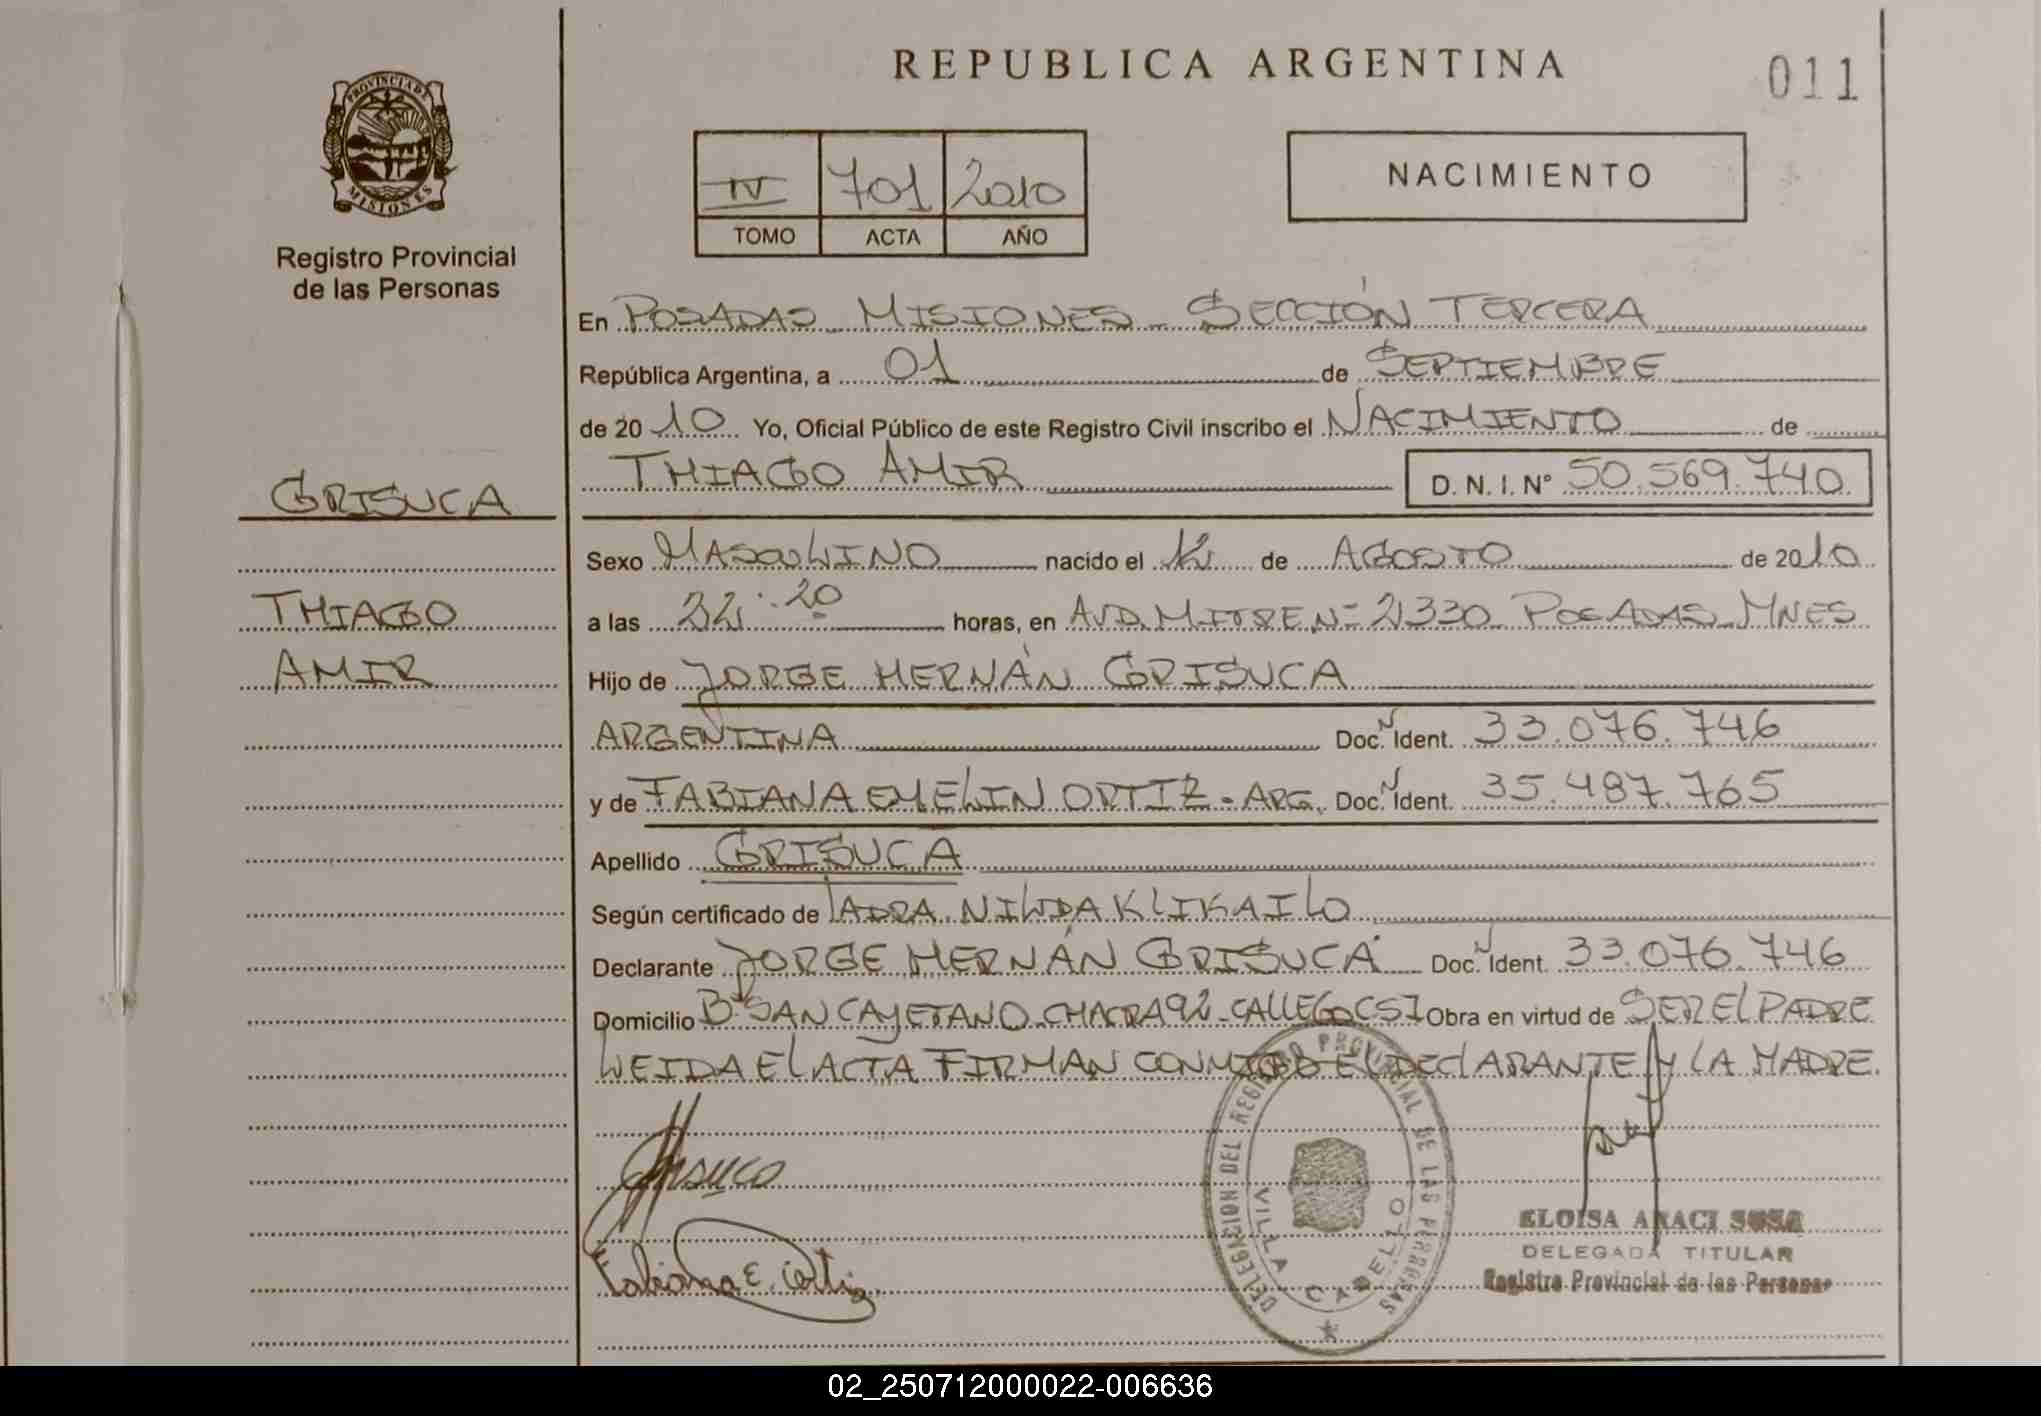 REPUBLICA ARGENTINA
011
PROVINCIA DE
MISIONES
Registro Provincial
de las Personas
IV 701 2010
TOMO ACTA AÑO
NACIMIENTO
En POSADAS MISIONES - SECCIÓN TERCERA
República Argentina, a 01 de SEPTIEMBRE
de 2010 Yo, Oficial Público de este Registro Civil inscribo el NACIMIENTO de
THIAGO AMIR D. N. I. N° 50.569.740
GRISUCA
THIAGO
AMIR
Sexo MASCULINO nacido el 12 de AGOSTO de 2010
a las 22:20 horas, en AVD. MITRE N= 2330 POSADAS MNES
Hijo de JORGE HERNÁN GRISUCA
ARGENTINA Doc. N Ident. 33.076.746
y de FABIANA EMELIN ORTIZ - ARG. Doc. N Ident. 35.487.765
Apellido GRISUCA
Según certificado de NILDA KLIKAILO
Declarante JORGE HERNÁN GRISUCA Doc. N Ident. 33.076.746
Domicilio B° SAN CAYETANO CHACRA 92 - CALLE Obra en virtud de SER EL PADRE
LEIDA EL ACTA FIRMAN CONMIGO EL DECLARANTE Y LA MADRE.
Grisuca
Fabiana E. Ortiz
DELEGACION DEL REGISTRO PROVINCIAL DE LAS PERSONAS
VILLA CABELLO
ELOISA ARACI SOSA
DELEGADA TITULAR
Registro Provincial de las Personas
02_250712000022-006636